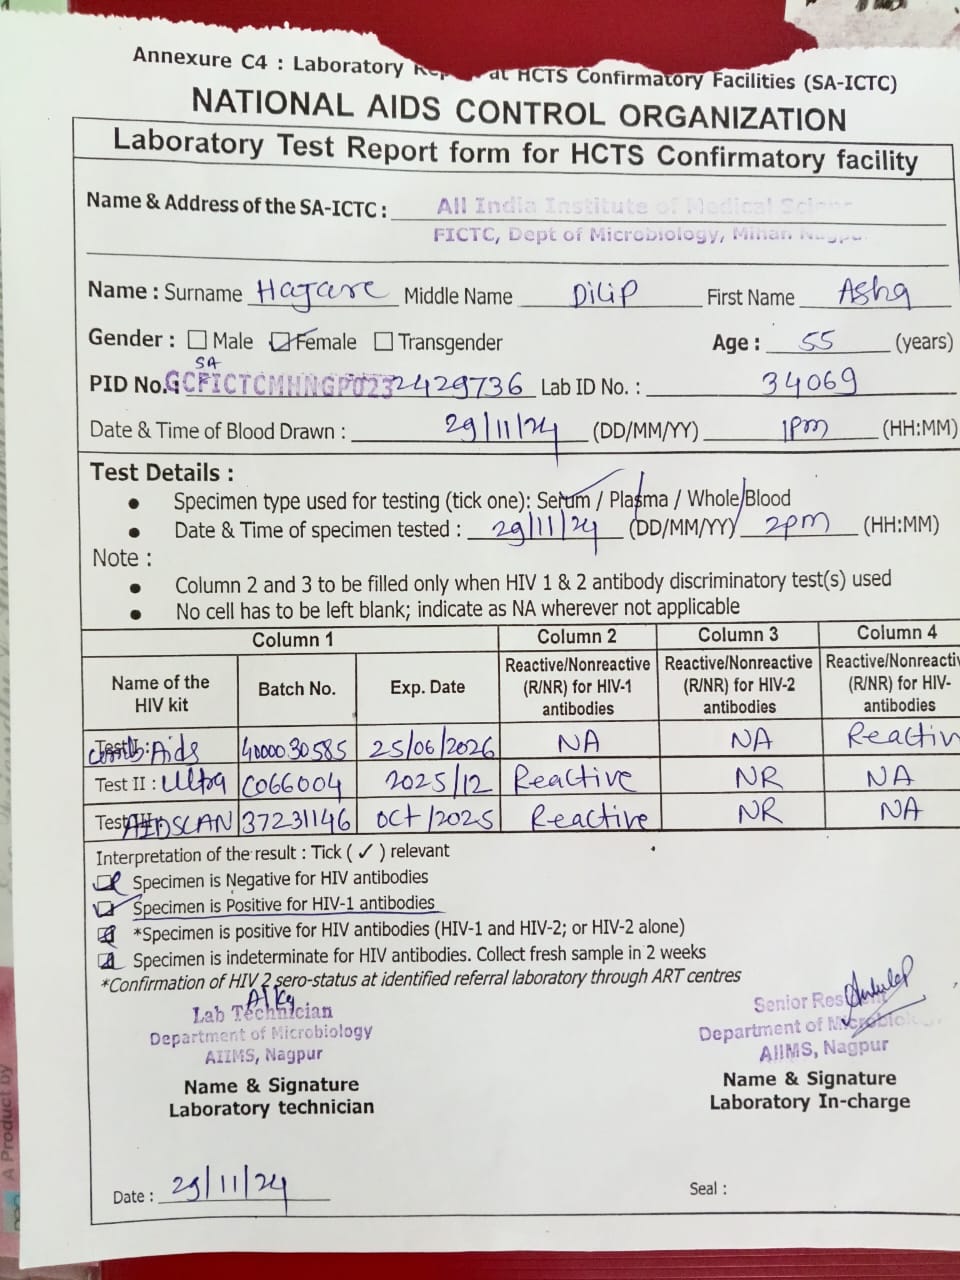 Annexure C4 : Laboratory at HCTS Confirmatory Facilities (SA-ICTC)
NATIONAL AIDS CONTROL ORGANIZATION
Laboratory Test Report form for HCTS Confirmatory facility
Name & Address of the SA-ICTC : All India Institute of Medical
FICTC, Dept of Microbiology, Mihan
Name : Surname Hajare Middle Name Dilip First Name Asha
Gender : Male Female Transgender Age : 55 (years)
SA
PID No. 2429736 Lab ID No. : 34069
Date & Time of Blood Drawn : 29/11/24 (DD/MM/YY) 1pm (HH:MM)
Test Details :
• Specimen type used for testing (tick one): Serum / Plasma / Whole Blood
• Date & Time of specimen tested : 29/11/24 (DD/MM/YY) 2pm (HH:MM)
Note :
• Column 2 and 3 to be filled only when HIV 1 & 2 antibody discriminatory test(s) used
• No cell has to be left blank; indicate as NA wherever not applicable
Column 1 Column 2 Column 3 Column 4
Name of the HIV kit Batch No. Exp. Date Reactive/Nonreactive (R/NR) for HIV-1 antibodies Reactive/Nonreactive (R/NR) for HIV-2 antibodies (R/NR) for HIV- antibodies
Aids 4000030585 25/06/2026 NA NA
Test II : Ultra C066004 2025/12 Reactive NR NA
AIDSCAN 37231146 Oct/2025 Reactive NR NA
Interpretation of the result : Tick ( ✓ ) relevant
Specimen is Negative for HIV antibodies
Specimen is Positive for HIV-1 antibodies
*Specimen is positive for HIV antibodies (HIV-1 and HIV-2; or HIV-2 alone)
Specimen is indeterminate for HIV antibodies. Collect fresh sample in 2 weeks
*Confirmation of HIV 2 sero-status at identified referral laboratory through ART centres
Lab Technician
Department of Microbiology
AIIMS, Nagpur
Name & Signature
Laboratory technician
Senior
Department of
AIIMS, Nagpur
Name & Signature
Laboratory In-charge
Date : 29/11/24
Seal :
A Product by